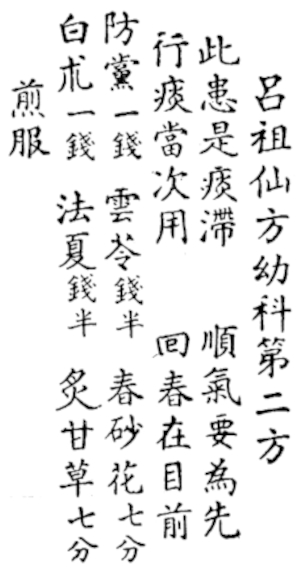 呂祖仙方幼科第二方
此患是痰滯　順氣要為先
行痰當次用　回春在目前
防黨一錢　雲苓錢半　春砂花七分
白朮一錢　法夏錢半　炙甘草七分
煎服